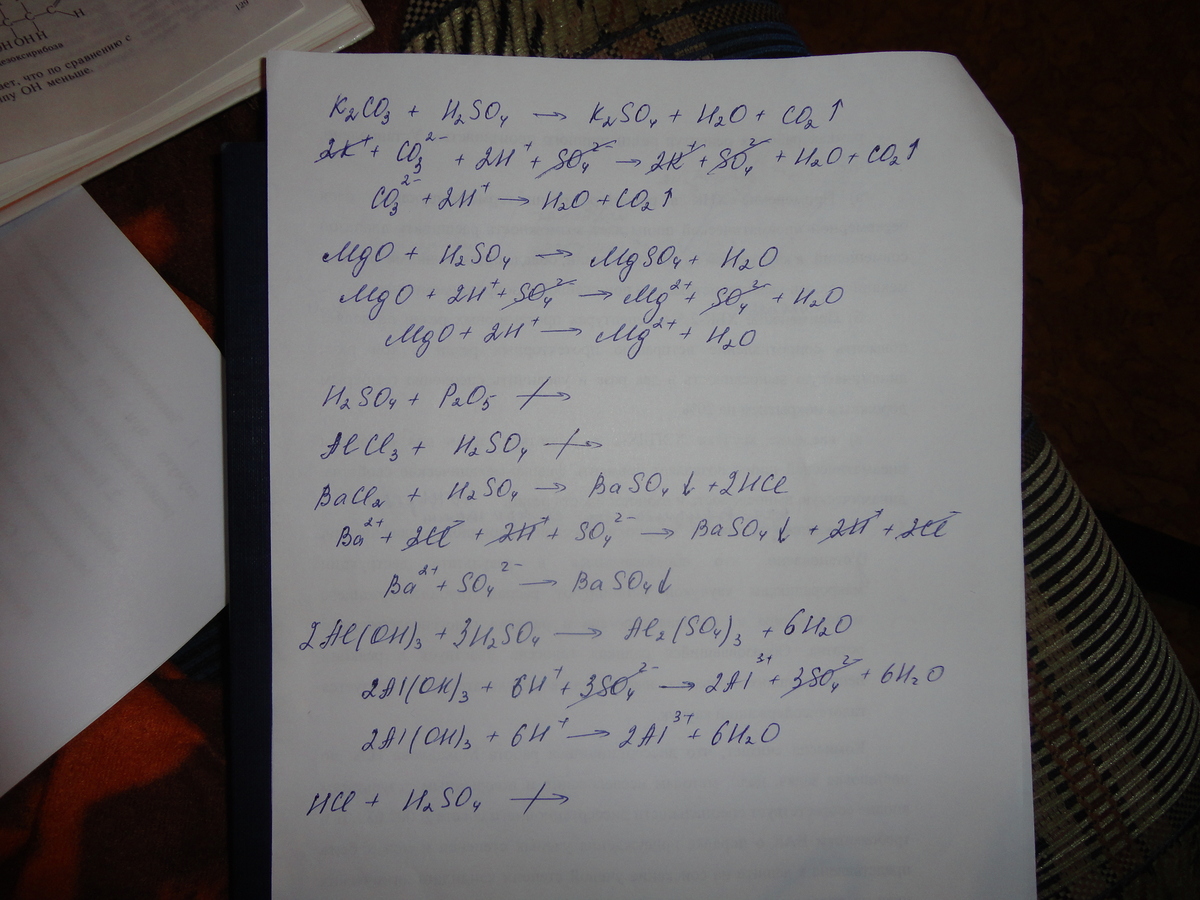 129
H
OH OH H
езоксирибоза
ает, что по сравнению с
пу OH меньше.
K₂CO₃ + H₂SO₄ → K₂SO₄ + H₂O + CO₂↑
2K⁺ + CO₃²⁻ + 2H⁺ + SO₄²⁻ → 2K⁺ + SO₄²⁻ + H₂O + CO₂↑
CO₃²⁻ + 2H⁺ → H₂O + CO₂↑
MgO + H₂SO₄ → MgSO₄ + H₂O
MgO + 2H⁺ + SO₄²⁻ → Mg²⁺ + SO₄²⁻ + H₂O
MgO + 2H⁺ → Mg²⁺ + H₂O
H₂SO₄ + P₂O₅ ↛
AlCl₃ + H₂SO₄ ↛
BaCl₂ + H₂SO₄ → BaSO₄↓ + 2HCl
Ba²⁺ + 2Cl⁻ + 2H⁺ + SO₄²⁻ → BaSO₄↓ + 2H⁺ + 2Cl⁻
Ba²⁺ + SO₄²⁻ → BaSO₄↓
2Al(OH)₃ + 3H₂SO₄ → Al₂(SO₄)₃ + 6H₂O
2Al(OH)₃ + 6H⁺ + 3SO₄²⁻ → 2Al³⁺ + 3SO₄²⁻ + 6H₂O
2Al(OH)₃ + 6H⁺ → 2Al³⁺ + 6H₂O
HCl + H₂SO₄ ↛